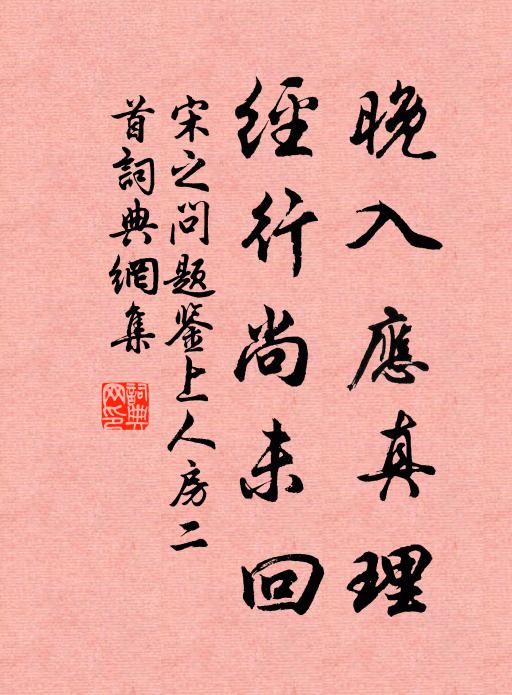 晚入應真理
經行尚未回
宋之问题鉴上人房二
首詞典網集
詞典網印